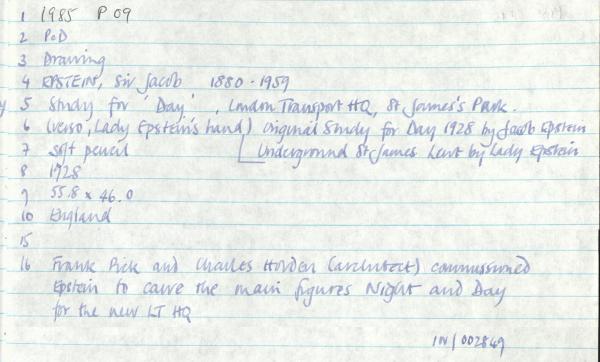 1 1985 P 09
2 P&D
3 Drawing
4 EPSTEIN, Sir Jacob 1880-1959
5 Study for 'Day', London Transport HQ, St James's Park.
6 (verso, Lady Epstein's hand) Original Study for Day 1928 by Jacob Epstein
7 soft pencil Underground St James Lent by Lady Epstein
8 1928
9 55.8 x 46.0
10 England
15
16 Frank Pick and Charles Holden (architect) commissioned
Epstein to carve the main figures Night and Day
for the new LT HQ
IN/002849